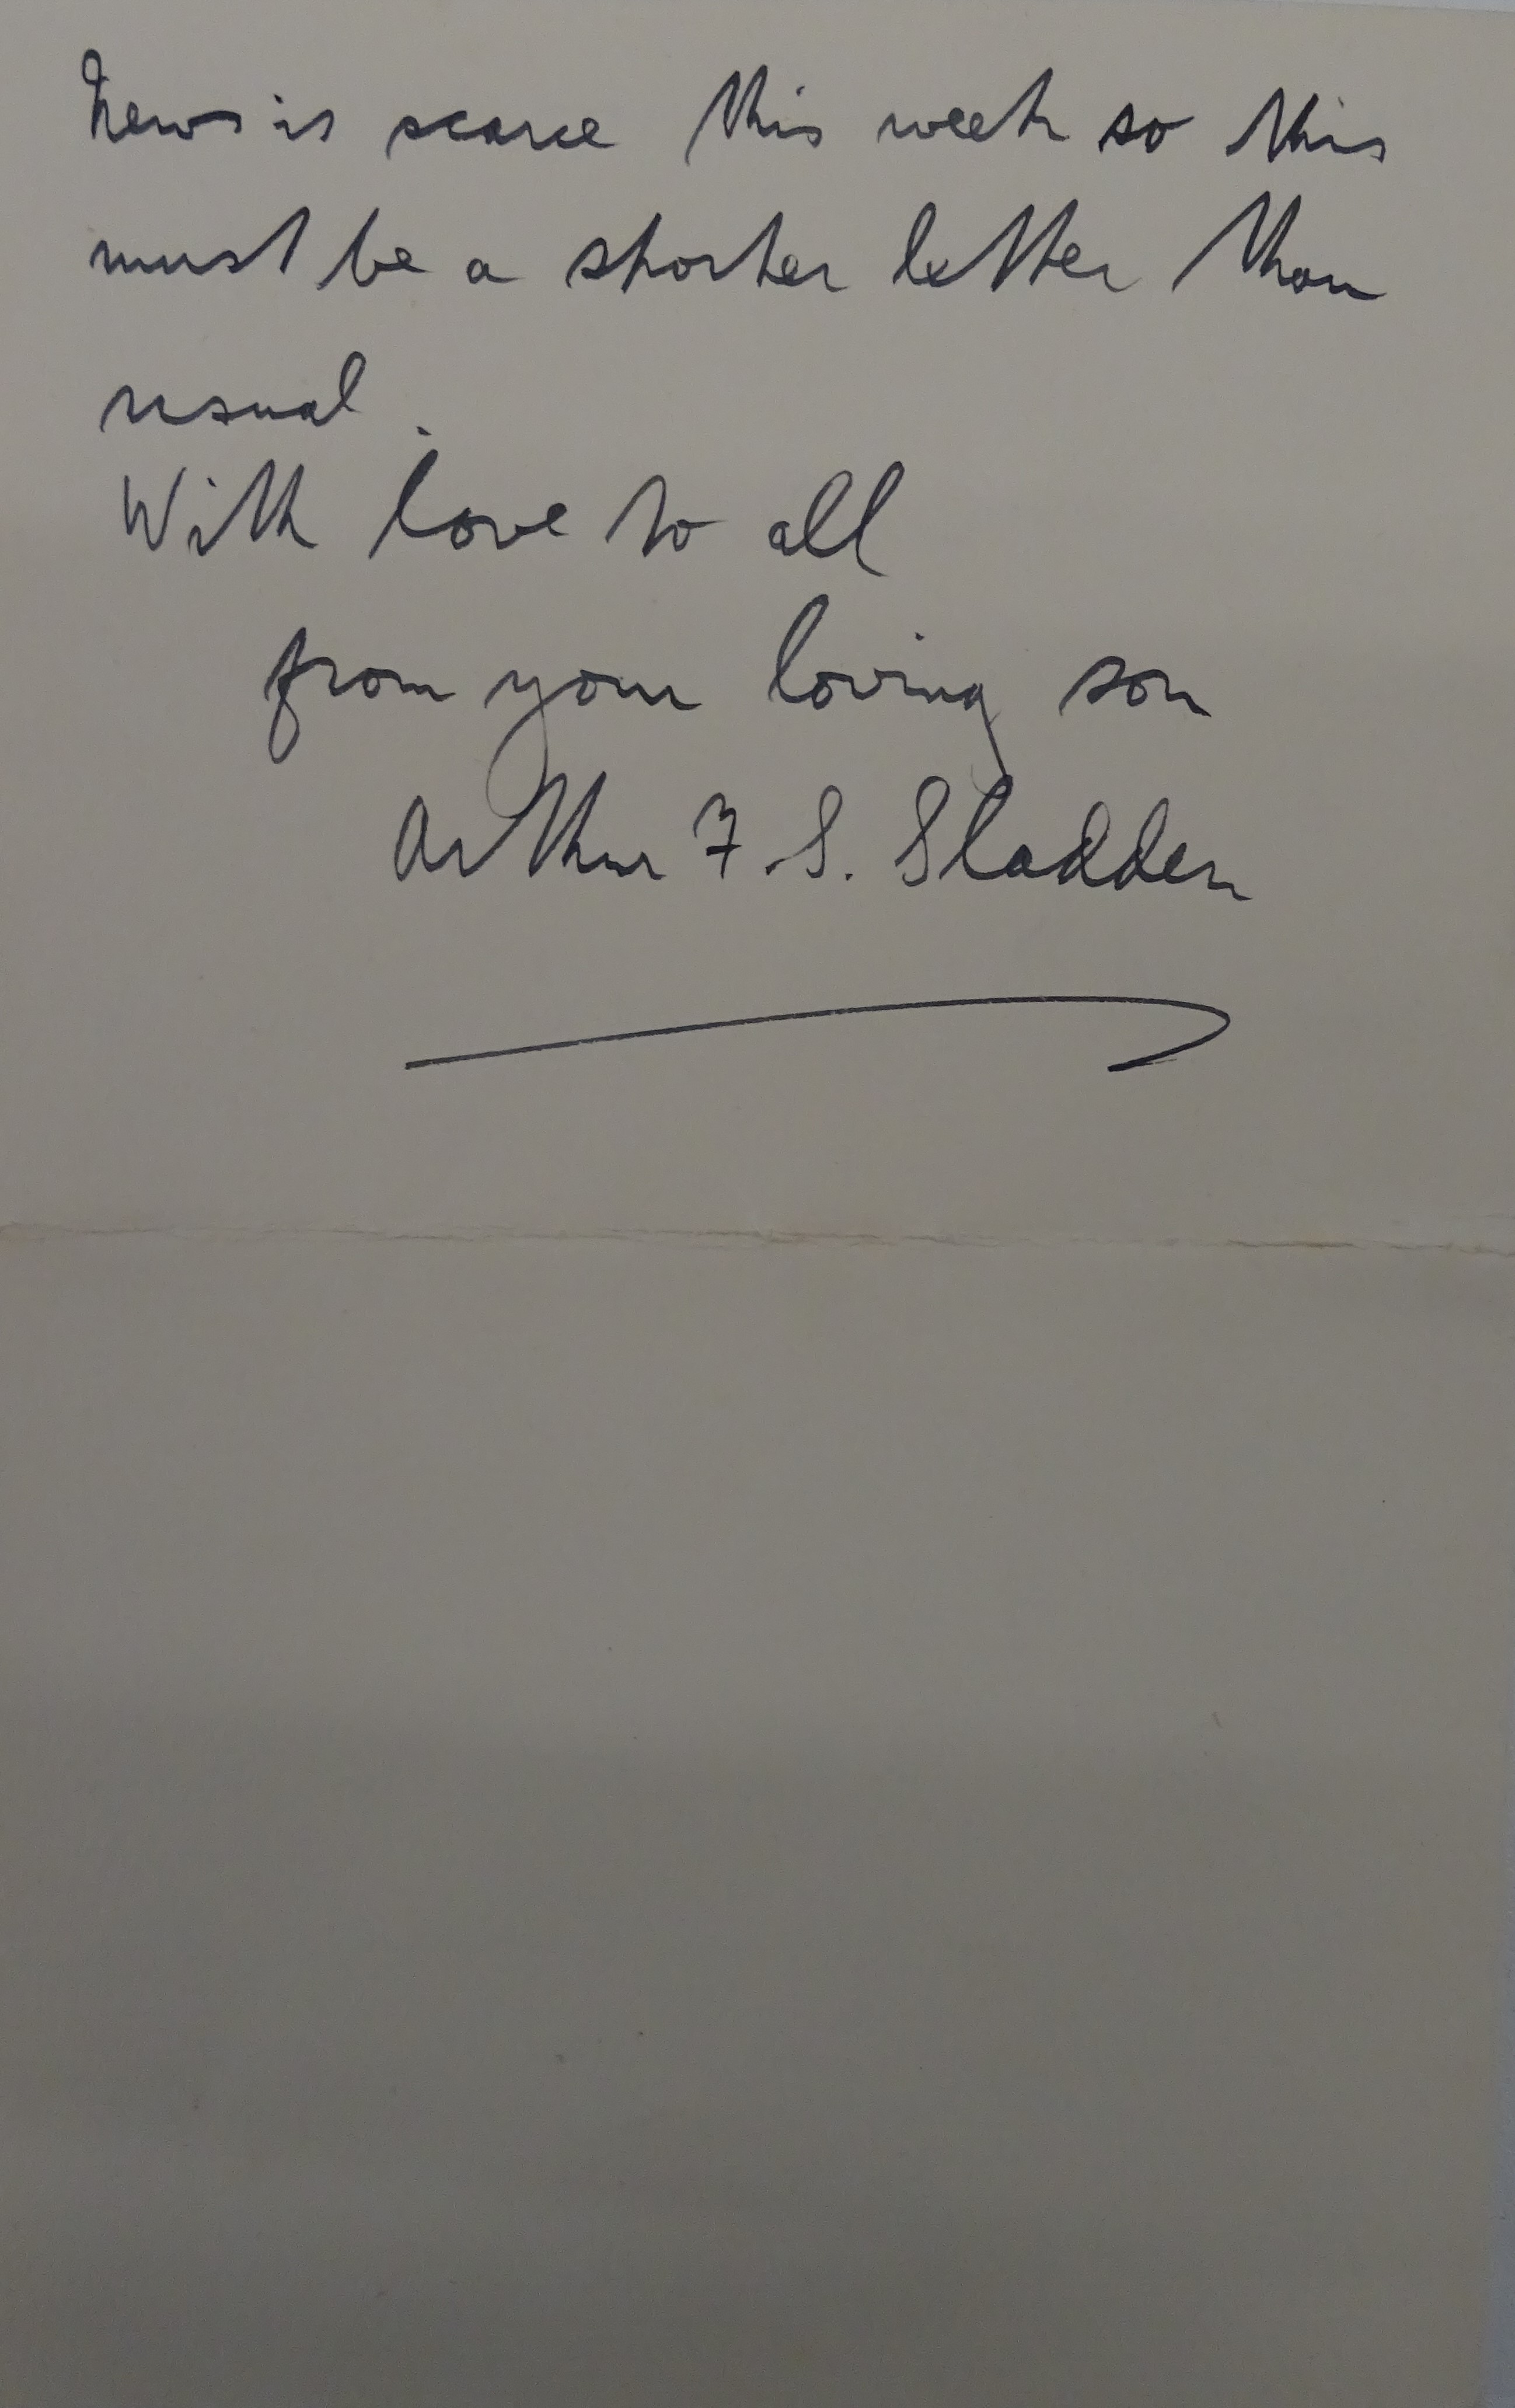 News is scarce this week so this
must be a shorter letter than
usual.
With love to all
from your loving son
Arthur F. S. Sladden